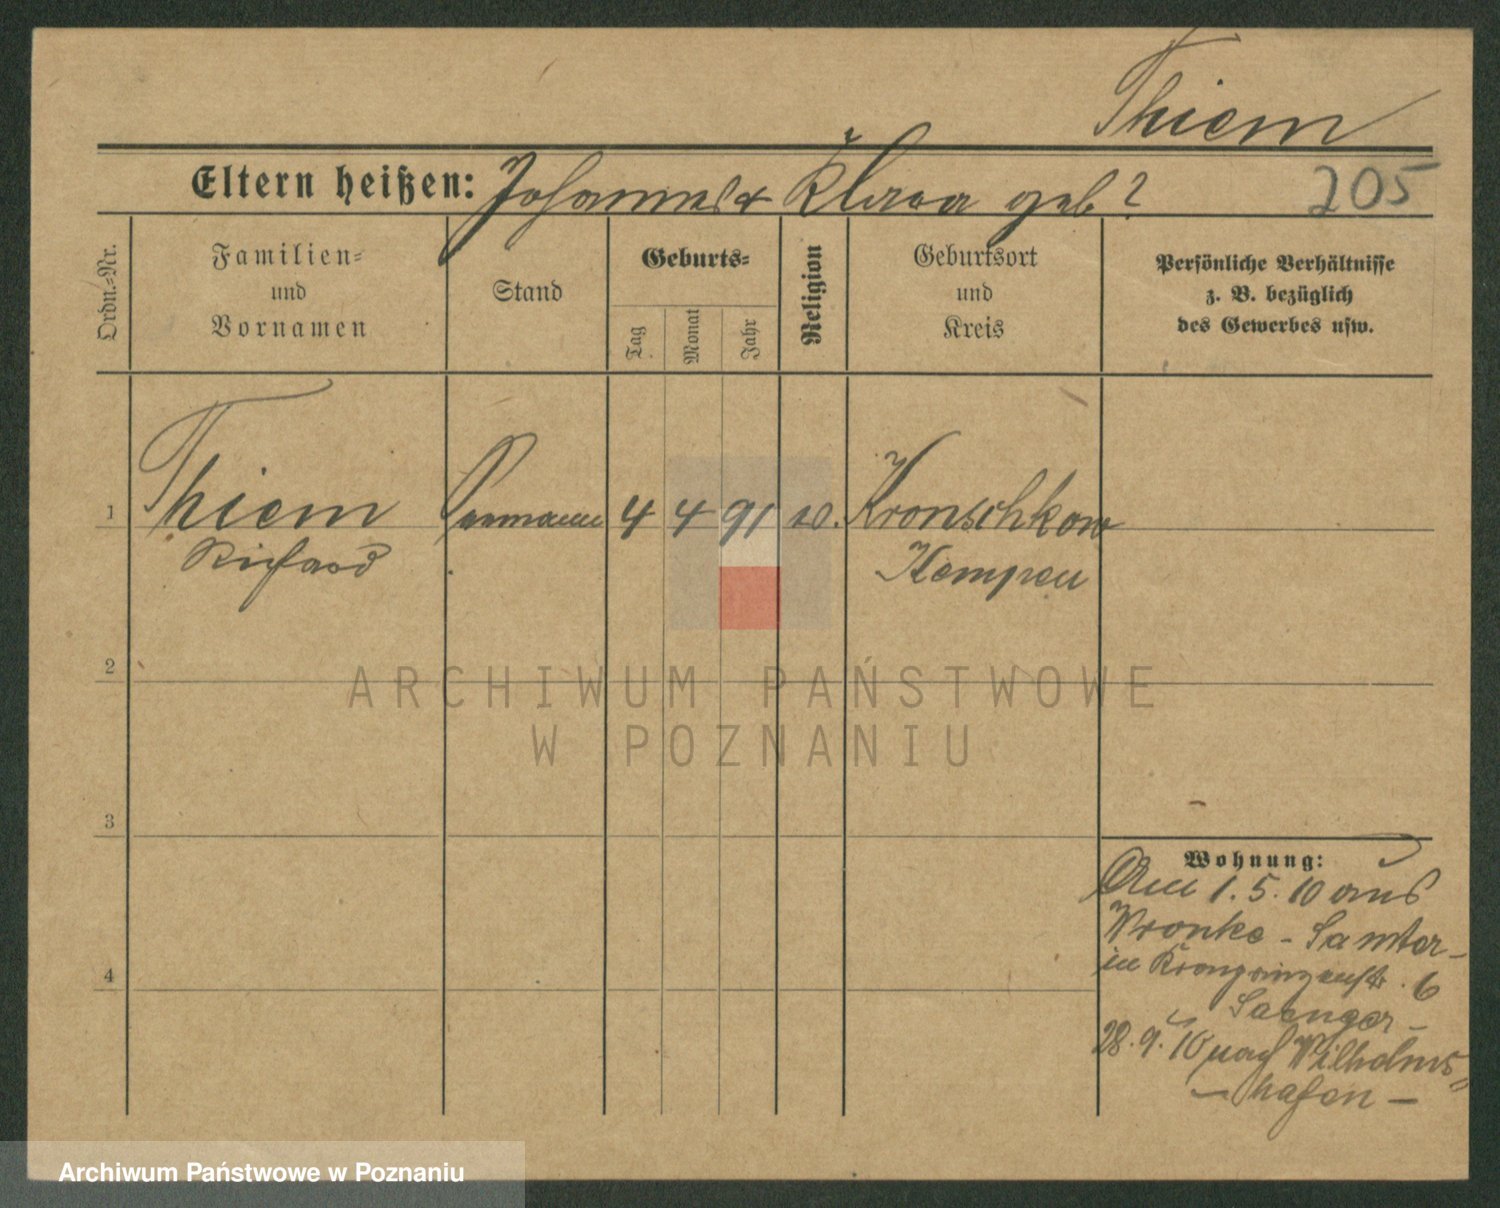 Thiem
Eltern heißen: Johannes & Klara geb?
205
Ordn.-Nr.
Familien-
und
Vornamen
Stand
Geburts-
Tag
Monat
Jahr
Religion
Geburtsort
und
Kreis
Persönliche Verhältnisse
z. B. bezüglich
des Gewerbes usw.
1 Thiem 4 4 91 Kronschkow
Richard Kempen
2
ARCHIWUM PAŃSTWOWE
W POZNANIU
3
Wohnung:
Am 1.5.10 aus
Wronke - Samter -
in Kronprinzenstr. 6
Saenger -
28.9.10 nach Wilhelms
- hafen -
4
Archiwum Państwowe w Poznaniu